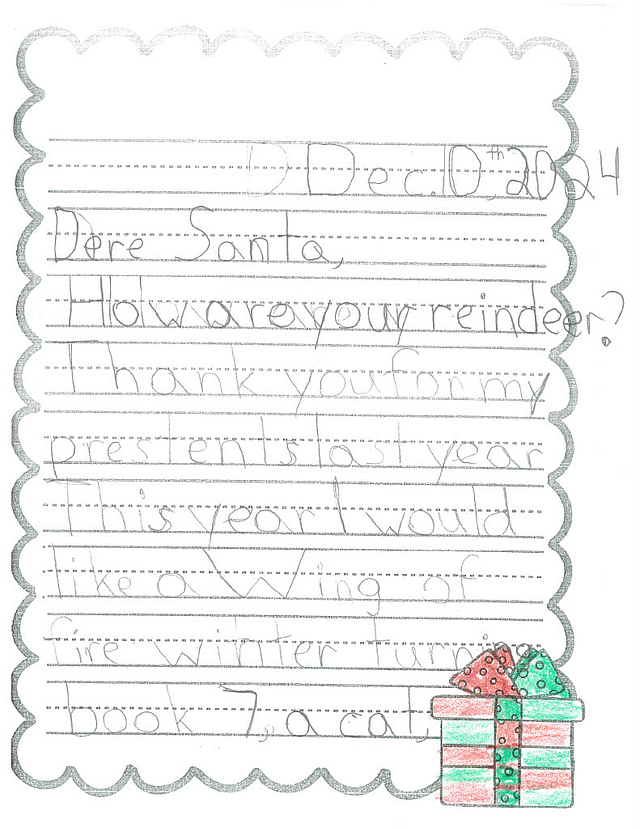 Dec. 10th, 2024
Dere Santa,
How are your reindeer?
Thank you for my
prestents last year
This year I would
like a Wing of
fire winter turning
book 7, a cat,